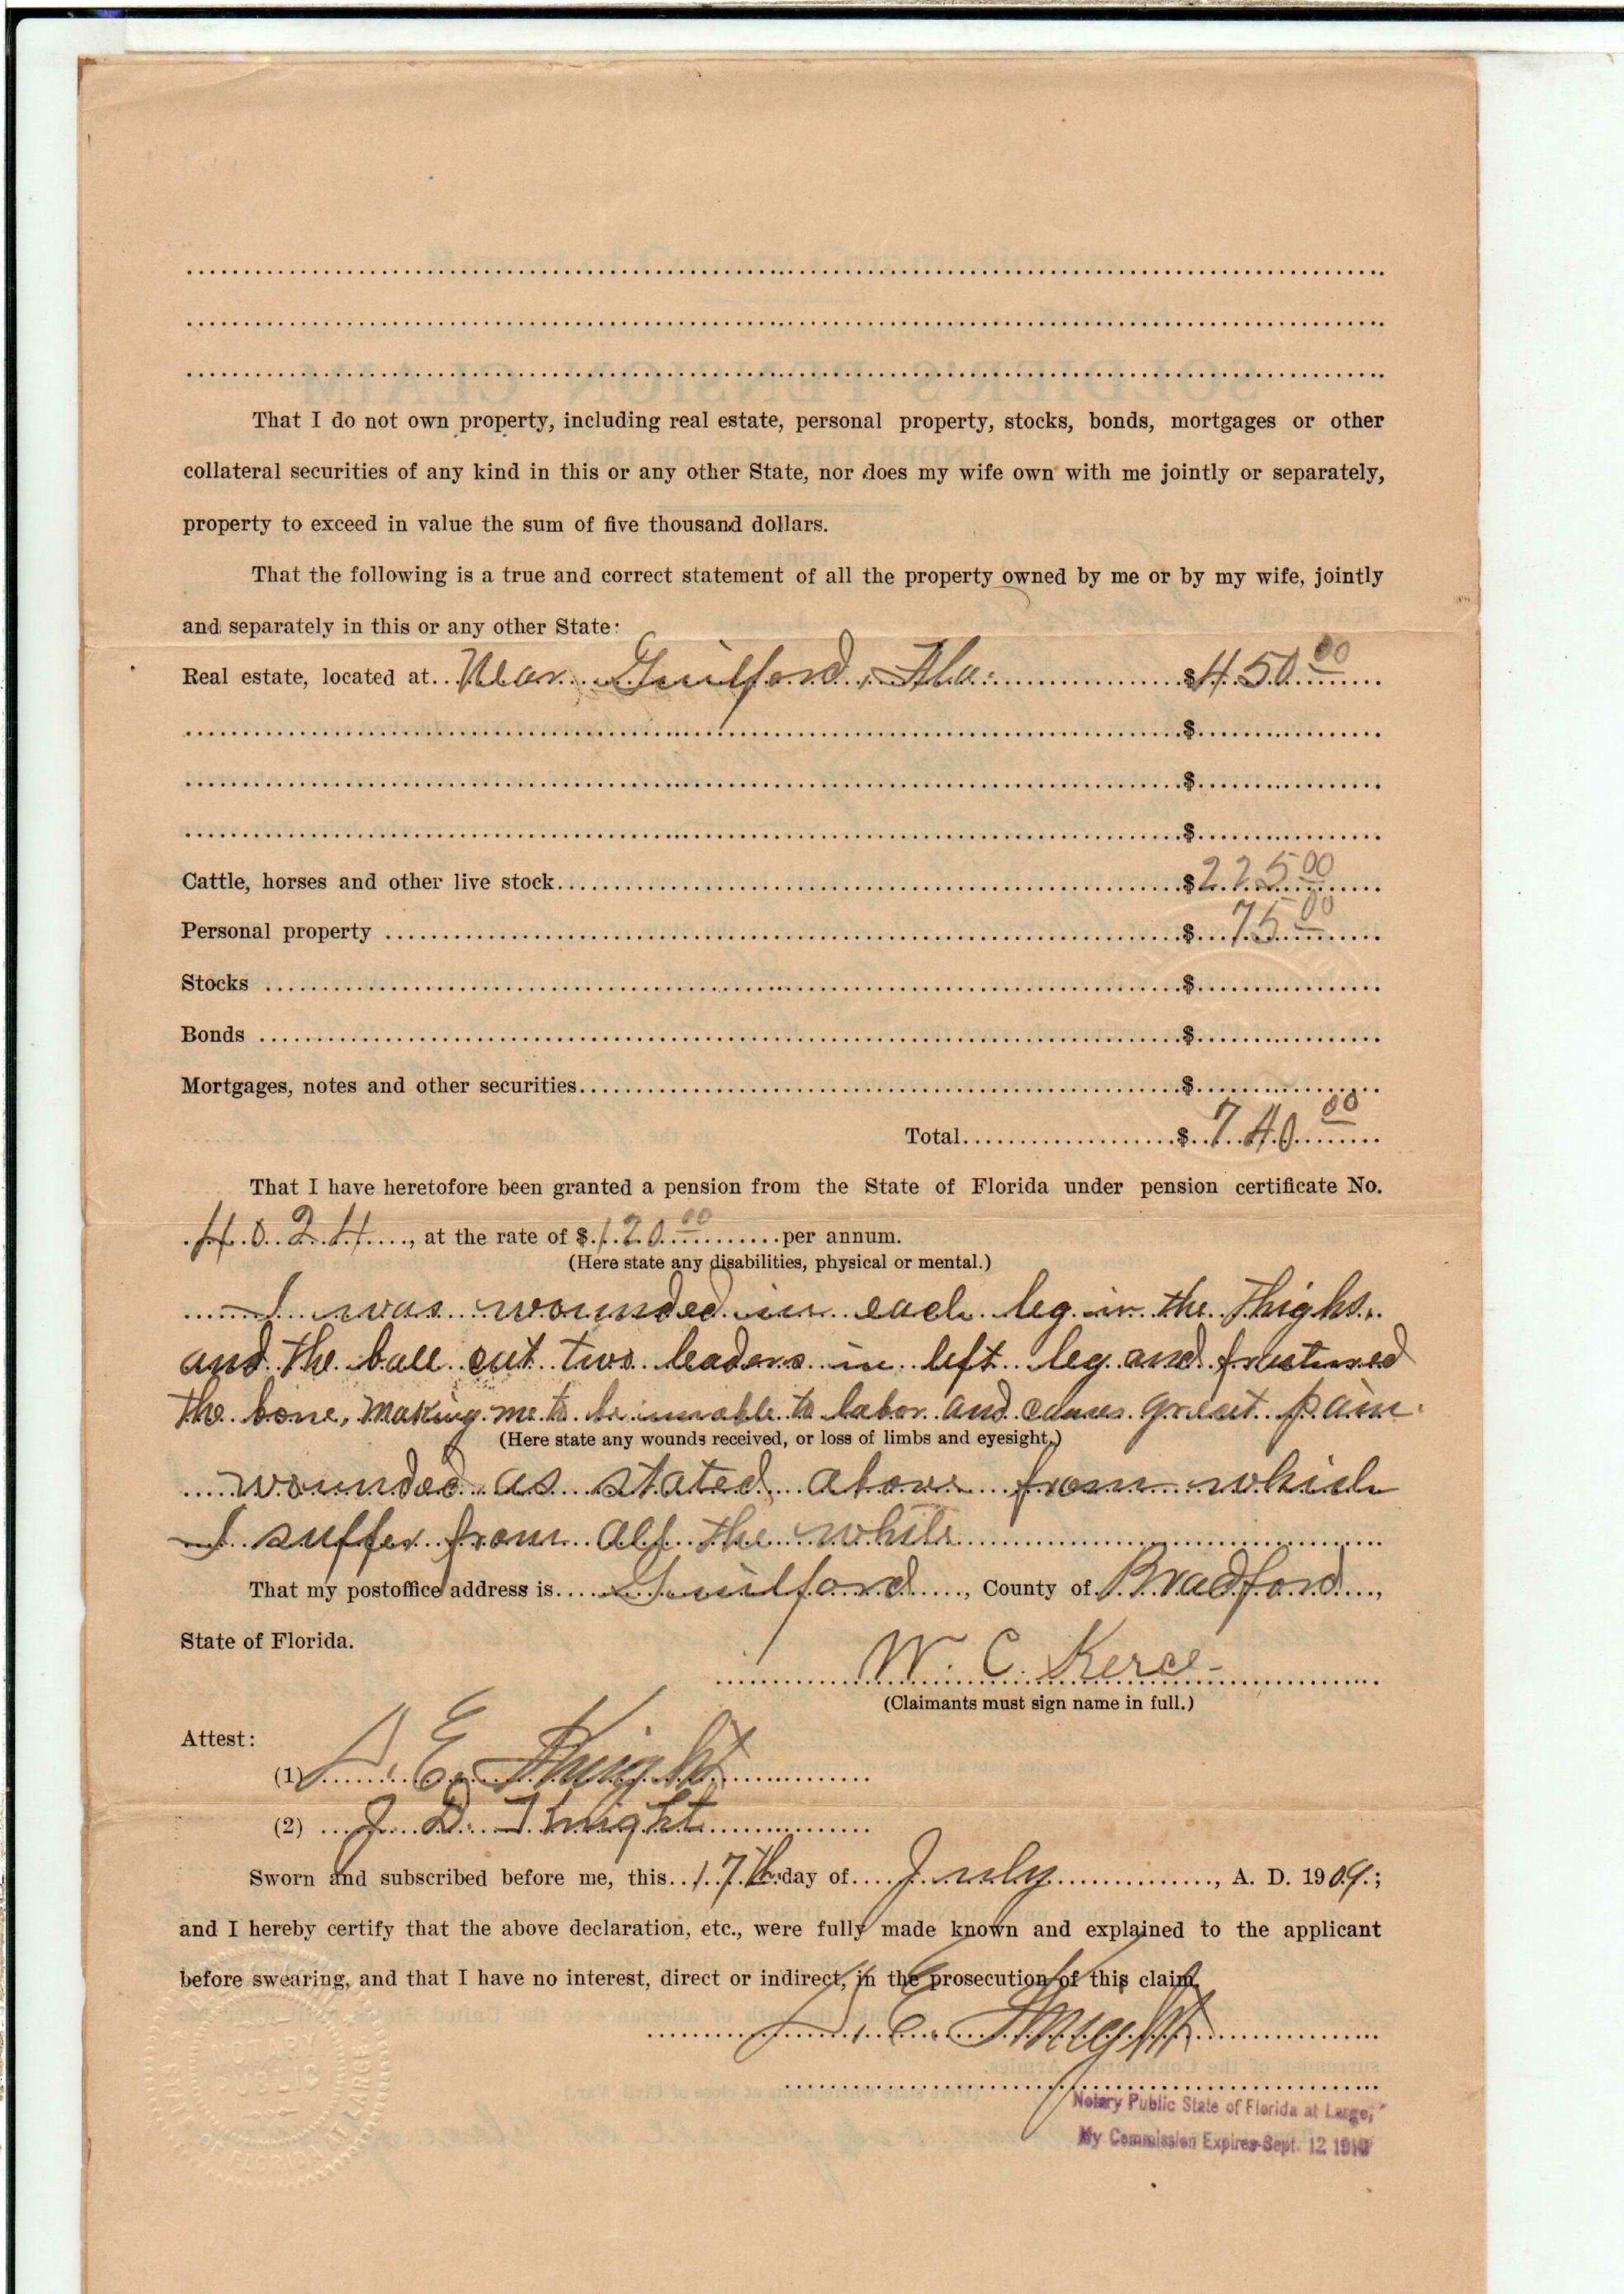 That I do not own property, including real estate, personal property, stocks, bonds, mortgages or other
collateral securities of any kind in this or any other State, nor does my wife own with me jointly or separately,
property to exceed in value the sum of five thousand dollars.
That the following is a true and correct statement of all the property owned by me or by my wife, jointly
and separately in this or any other State:
Real estate, located at Near Guilford, Fla. $450.00
$
$
$
Cattle, horses and other live stock $225.00
Personal property $75.00
Stocks $
Bonds $
Mortgages, notes and other securities $
Total $740.00
That I have heretofore been granted a pension from the State of Florida under pension certificate No.
4024, at the rate of $120.00 per annum.
(Here state any disabilities, physical or mental.)
I was wounded in each leg in the Thighs.
and the ball cut two leaders in left leg and fractured
the bone, making me to be unable to labor and causes great pain.
(Here state any wounds received, or loss of limbs and eyesight.)
wounded as stated above from which
I suffer from all the while
That my postoffice address is Guilford, County of Bradford,
State of Florida.
W. C. Kerce
(Claimants must sign name in full.)
Attest:
(1) E. Knight
(2) J. D. Knight
Sworn and subscribed before me, this 17th day of July, A. D. 1909;
and I hereby certify that the above declaration, etc., were fully made known and explained to the applicant
before swearing, and that I have no interest, direct or indirect, in the prosecution of this claim.
E. Knight
Notary Public State of Florida at Large,
My Commission Expires Sept. 12 1910
NOTARY
PUBLIC